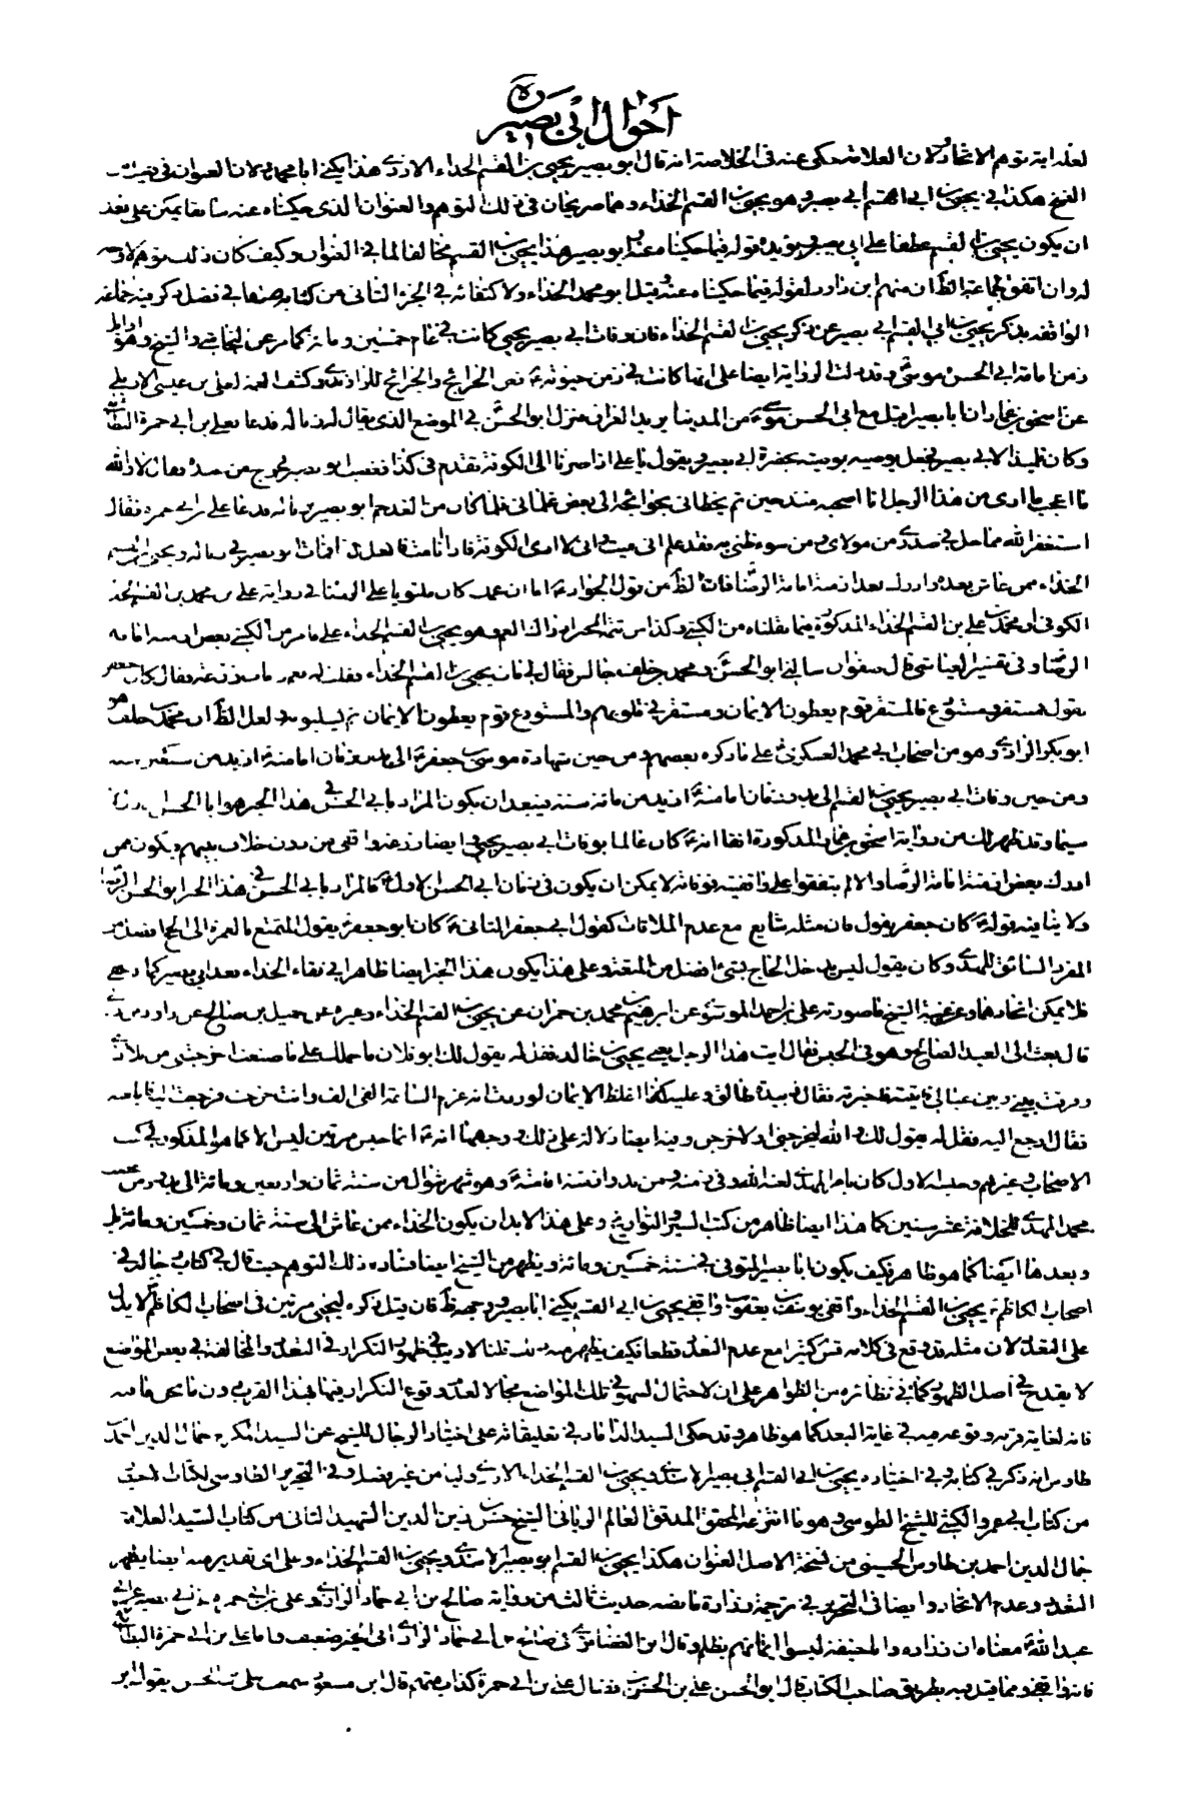 احوال ابی بصیر
توهم الاتحاد لان العلامة حكى عنه فى الخلاصة انه قال ابو بصير يحيى بن القسم الحذاء الازدى هذا يكنى ابا محمد ولان العنوان فى
الشيخ هكذا فى يحيى بن ابى القسم ابى بصير و هو يحيى بن القسم الحذاء وهما صريحان فى ذلك التوهم والعنوان الذى حكيناه عنه سابقا يمكن على بعد
ان يكون يحيى بن القسم عطفا على ابى بصير ويؤيده قوله فيما حكينا عنه ابو بصير هذا يحيى بن القسم مخالفا لما فى العنوان وكيف كان ذلك توهم
له وان اتفق لجماعة الظ ان منهم ابن داود لقوله فيما حكيناه عنه وقيل ابو محمد الحذاء ولاكتفائه فى الجزء الثانى من كتابه فى فصل ذكر فيه جماعة
الواقفة بذكر يحيى بن ابى القسم ابى بصير عن ذكر يحيى بن القسم الحذاء فان وفات ابى بصير يحيى كانت فى عام خمسين ومائة كما مر عن النجاشى والشيخ وهو
زمن امامة ابى الحسن موسى وقد دلت الرواية ايضا على انها كانت فى زمن حيوته فعن الخرائج والجرائح للراوندى وكشف الغمة لعلى بن عيسى الاربلى
عن اسحق بن عمار ان ابا بصير اقبل مع ابى الحسن موسى من المدينة يريد العراق فنزل ابو الحسن فى الموضع الذى يقال له زبالة فدعا بعلى بن ابى حمزة البطائنى
وكان تلميذا لابى بصير فجعل يوصيه بوصية بحضرة ابى بصير ويقول يا على اذا صرنا الى الكوفة تقدم فى كذا فغضب ابو بصير فخرج من عنده فقال لا والله
ما اعجب ما ارى من هذا الرجل انا اصحبه منذ حين ثم يتخطانى بحوائجه الى بعض غلمانى فلما كان من الغد حم ابو بصير بزبالة فدعا على بن ابى حمزة فقال
استغفر الله مما حل فى صدرى من مولاى ومن سوء ظنى به فقد علم انى ميت وانى لا ارى الكوفة فاذا انا مت فافعل كذا فمات ابو بصير فى زبالة ويحيى بن القسم
الحذاء ممن عاش بعده وادرك بعد ازمنة امامة الرضا فان الظ من قول الجواد اما ان عمك كان ملتويا على الرضا فى رواية على بن محمد بن القسم الحذاء
الكوفى او محمد بن على بن القسم الحذاء المذكورة فيما نقلناه من الكشى وكذا من تتمة الخبر ان ذاك العم هو يحيى بن القسم الحذاء على ما مر من الكشى بعض ازمنة امامة
الرضا وفى تفسير العياشى قال صفوان سالنى ابو الحسن ومحمد بن خلف جالس فقال لى مات يحيى بن القسم الحذاء فقلت له نعم ومات زرعة فقال كان جعفر
يقول مستقر ومستودع فالمستقر قوم يعطون الايمان ومستقر فى قلوبهم والمستودع قوم يعطون الايمان ثم يسلبونه ولعل الظ ان محمد بن خلف هو
ابو بكر الرازى وهو من اصحاب ابى محمد العسكرى على ما ذكره بعضهم ومن حين شهادة موسى بن جعفر الى بدو زمان امامته ازيد من ستين سنة
ومن حين وفات ابى بصير يحيى بن القسم الى بدو زمان امامته ازيد من مائة سنة فيبعد ان يكون المراد بابى الحسن فى هذا الخبر هو ابا الحسن
سيما وقد ظهر لك من رواية اسحق بن عمار المذكورة انفا انه كان عالما بوفات ابى بصير يحيى ايضا زرعة واقفى من دون خلاف بينهم ويكون ممن
ادرك بعض ازمنة امامة الرضا والا لم يتفقوا على واقفيته فوفاته لا يمكن ان يكون فى زمان ابى الحسن الاول فالمراد بابى الحسن فى هذا الخبر ابو الحسن الرضا
ولا ينافيه قوله كان جعفر يقول فان مثله شايع مع عدم الملاقات كقول ابى جعفر الثانى كان ابو جعفر يقول المتمتع بالعمرة الى الحج افضل من
المفرد السائق للهدى وكان يقول ليس يدخل الحاج بشىء افضل من المتعة وعلى هذا يكون هذا الخبر ايضا ظاهرا فى بقاء الحذاء بعد ابى بصير كما ادعى
فلا يمكن اتحادهما وعن غيبة الشيخ ما صورته على بن احمد الموسوى عن ابرهيم بن محمد بن حمران عن يحيى بن القسم الحذاء وغيره عن جميل بن صالح عن داود بن زربى
قال بعث الى العبد الصالح وهو فى الحبس فقال ايت هذا الرجل يعنى يحيى بن خالد فقل له يقول لك ابو فلان ما حملك على ما صنعت اخرجتنى من بلادى
وفرقت بينى وبين عيالى فاتيته فاخبرته فقال زبيدة طالق وعليه اغلظ الايمان لوددت انه غرم الساعة الفى الف وانت خرجت فرجعت اليه فابلغته
فقال ارجع اليه فقل له يقول لك والله لتخرجنى او لاخرجن وفيه ايضا دلالة على ذلك وجهها انه انما حبس مرتين ليس الا كما هو المذكور فى كتب
الاصحاب وغيرهم وحبسه الاول كان بامر المهدى لعنه الله وفى زمنه ومن بدو ازمنة امامته وهو شهر شوال من سنة ثمان واربعين ومائة الى بدو زمن تصدى
محمد المهدى للخلافة عشر سنين كما هذا ايضا ظاهر من كتب السير والتواريخ وعلى هذا لابد ان يكون الحذاء ممن عاش الى سنة ثمان وخمسين ومائة بل
وبعدها ايضا كما هو ظاهر فكيف يكون ابا بصير المتوفى فى سنة خمسين ومائة ويظهر من الشيخ ايضا فساد ذلك التوهم حيث قال فى كتاب رجاله فى
اصحاب الكاظم يحيى بن القسم الحذاء واقفى يوسف بن يعقوب واقفى يحيى بن ابى القسم يكنى ابا بصير وجه الظ فان قيل ذكره ليحيى مرتين فى اصحاب الكاظم لا يدل
على التعدد لان مثله قد وقع فى كلامه كثيرا مع عدم التعدد قطعا فكيف يظهر منه ذلك قلنا لا ريب فى ظهور التكرار فى التعدد والمخالفة فى بعض المواضع
لا يقدح فى اصل الظهور كما فى نظائره من الظواهر على ان لاحتمال السهو فى تلك المواضع مجالا لعدم وقوع التكرار فيها بهذا القرب دون ما نحن فيه
فانه لغاية قربه وقوعه فيه فى غاية البعد كما هو ظاهر وقد حكى السيد الداماد فى تعليقاته على اختيار الرجال للشيخ عن السيد المكرم جمال الدين احمد بن
طاوس انه ذكر فى كتابه فى اختياره يحيى بن ابى القسم ابى بصير الاسدى ويحيى بن القسم الحذاء الازدى ولاء من غير فصل وفى التحرير الطاوسى لكتاب
من كتاب ابى عمرو الكشى للشيخ الطوسى وهو ما انتزعه المحقق المدقق العالم الربانى الشيخ حسن بن زين الدين الشهيد الثانى من كتاب السيد العلامة
جمال الدين احمد بن طاوس الحسينى من نسخة الاصل العنوان هكذا يحيى بن القسم ابو بصير الاسدى ويحيى بن القسم الحذاء وعلى اى تقدير منه ايضا يظهر
التعدد وعدم الاتحاد وايضا فى التحرير فى ترجمة زرارة ما نصه حديث ثالث من رواية صالح بن ابى حماد الرازى وعلى بن ابى حمزة عن ابى بصير عن ابى
عبد الله معناه ان زرارة وابا حنيفة ليسوا ايمانهم بظلم وقال ابن الغضائرى فى صالح بن ابى حماد الرازى ابى الخير ضعيف واما على بن ابى حمزة البطائنى
فانه واقفى ومما قيل فيه بطريق صاحب الكتاب قال ابو الحسن على بن الحسن بن فضال على بن ابى حمزة كذاب متهم قال ابن مسعود سمعت على بن الحسن يقول ابن